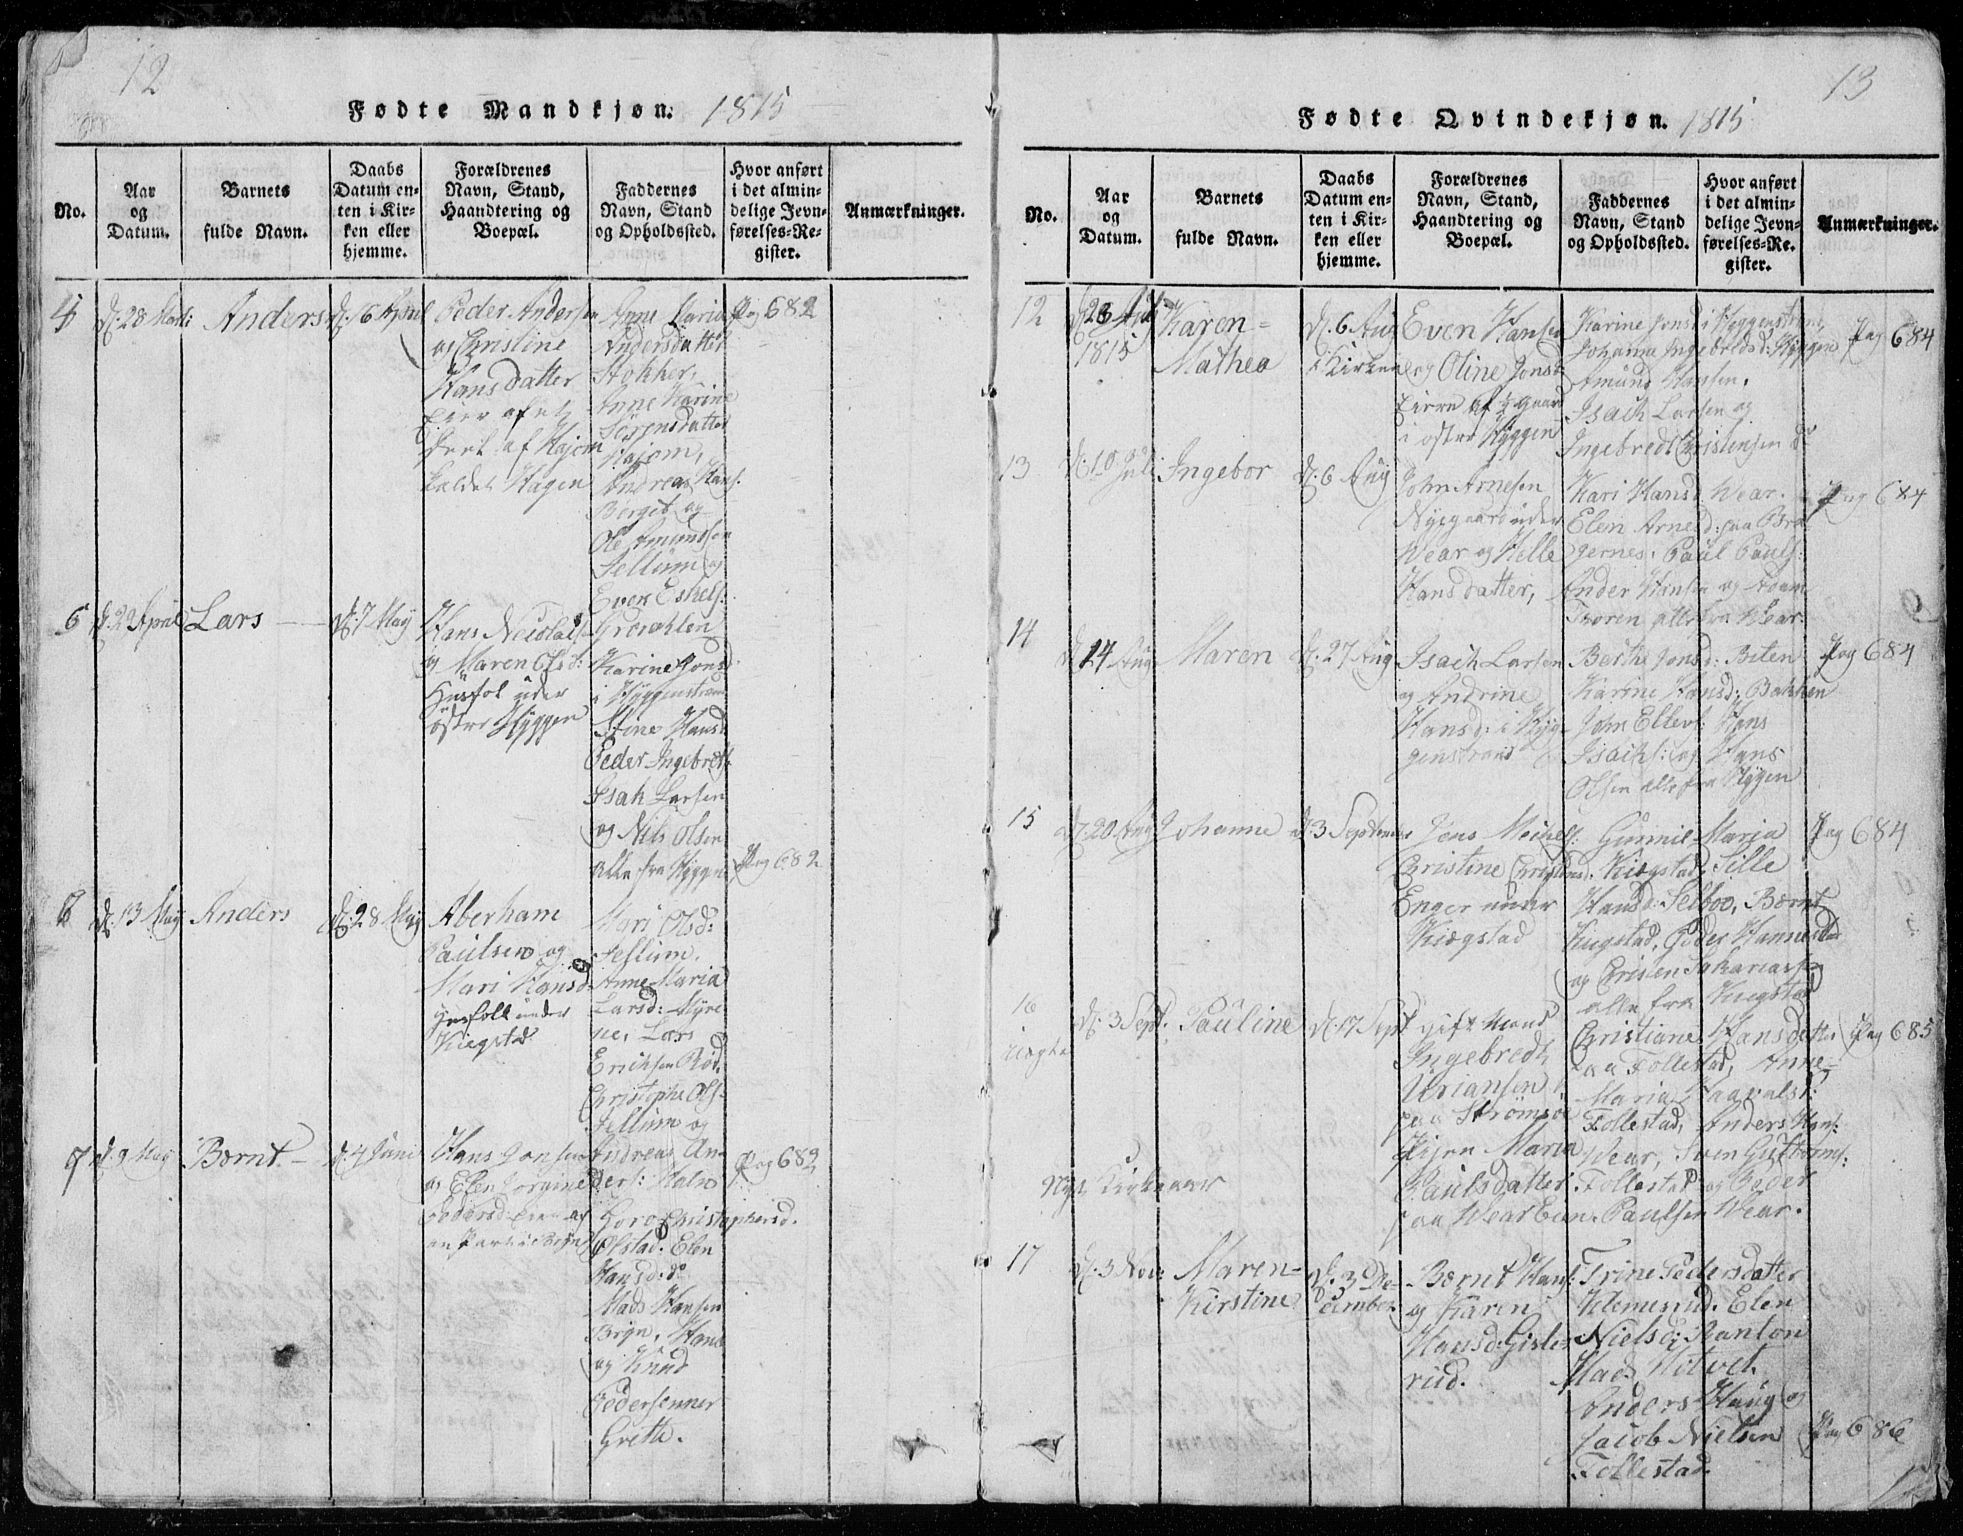 12
Fødte Mandkjøn. 1815
No.
Aar
og
Datum.
Barnets
fulde Navn.
Daabs
Datum en-
ten i Kir-
ken eller
hjemme.
Forældrenes
Navn, Stand,
Haandtering og
Boepæl.
Faddernes
Navn, Stand
og Opholdssted.
Hvor anført
i det almin-
delige Jevn-
førelses-Re-
gister.
Anmærkninger.
4
d: 28 Marti
Anders
d: 16 April
Peder Andersen
og Christine
Hansdatter
Eier af et
Part af Hajom
kaldet Hagen
Anne Maria
Andersdatter
Stokker,
Anne Karine
Sörensdatter
Hajom,
Andreas Hans:
Berget og
Ole Amundsen
Jellum og
Even Eskels:
Grosvolen
Pag 682
5
d: 22 April
Lars
d: 7 May
Hans Nicolais:
og Maren Olsd:
Husfolk under
östre Hyggen
Karine Jonsd
i Hyggenstran
Stine Hansd
Peder Ingebrets:
Isak Larsen
og Nils Olsen
alle fra Hyggen
Pag 682
6
d: 13 May
Anders
d: 28 May
Aberham
Paulsen og
Mari Hansd:
Husfolk under
Kiegstad
Mari Olsd:
Jellum.
Anne Maria
Larsd: Myre
ne, Lars
Erichsen Röd,
Christophe Ols-
Jellum og
7
d: 9 May
Bernt
d: 4 Juni
Hans Jonsen
og Elen Jorgine
Pedersd: Eier af
en Part i Bryn
Andreas An-
ders: Maln
Goro Christophersd.
Olstad. Elen
Hansd: do
Mads Hansen
Bryn, Hans
og Knud
Pedersenner
Greth.
Pag 682
13
Fødte Qvindekjøn. 1815
No.
Aar
og
Datum.
Barnets
fulde Navn.
Daabs
Datum en-
ten i Kir-
ken eller
hjemme.
Forældrenes
Navn, Stand,
Haandtering og
Boepæl.
Faddernes
Navn, Stand
og Opholdssted.
Hvor anført
i det almin-
delige Jevn-
førelses-Re-
gister.
Anmærkninger.
12
1815
Karen-
Mathea
d: 6 Aug
i Kirken
Even Hansen
og Oline Jonsd
Eiere af ½ gaard
i östre Hyggen
Karine Jonsd i Hyggenstrane,
Johanne Ingebredsd: Hyggen
Amund Hansen.
Isach Larsen og
Ingebredt Christensen do
Pag 684
13
d: 10 Juli
Ingebor
d: 6 Aug
John Arnesen
Nyegaard under
Wear og Helle
Hansdatter,
Kari Hansd Wear.
Elen Arnesd: paa Bra
gernes. Paul Pauls:
Ander Hansen og Adam
Toren alle fra Wear
Pag 684
14
d: 14 Aug
Maren
d: 27 Aug
Isach Larsen
og Andrine
Hansd: i Hyg-
genstrand
Berthe Jonsd: Biten
Karine Hansd: Bakken
John Ellevs: Hans
Isachs: og Hans
Olsen alle fra Hygen
Pag 684
15
d: 20 Aug
Johanne
d: 3 September
Jens Mechels:
Christine Christensd.
Enger under
Kiøgstad
Gunnil Maria
Kiøgstad, Sille
Hansd: Selboe, Bernt
Kiegstad, Peder Hannestad
og Cristen Sakariasen
alle fra Kiegstad
Pag 684
16
d: 3 Sept.
Pauline
d: 17 Sept
gift Mand
Ingebredt
Urianser
paa Strömsöe
Pigen Maria
Paulsdatter
paa Wear Eien.
Christiane Hansdatter
paa Follestad, Anne-
Maria
Follestad, Anders Hans:
Wear, Sven Guttorms:
Follestad og Peder
Paulsen Wear.
Pag 685
Nyt Kirkeaar
17
d: 3 Nov:
Maren-
Kirstine
d: 3 De-
cember.
Bernt Hans:
og Karen
Hansd: Gisle-
rud.
Trine Pedersdatter
Klemesrud. Elen
Nielsd: Ranton
Mads Hotvet.
Anders Haug og
Jacob Nielsen
Follestad.
Pag 686